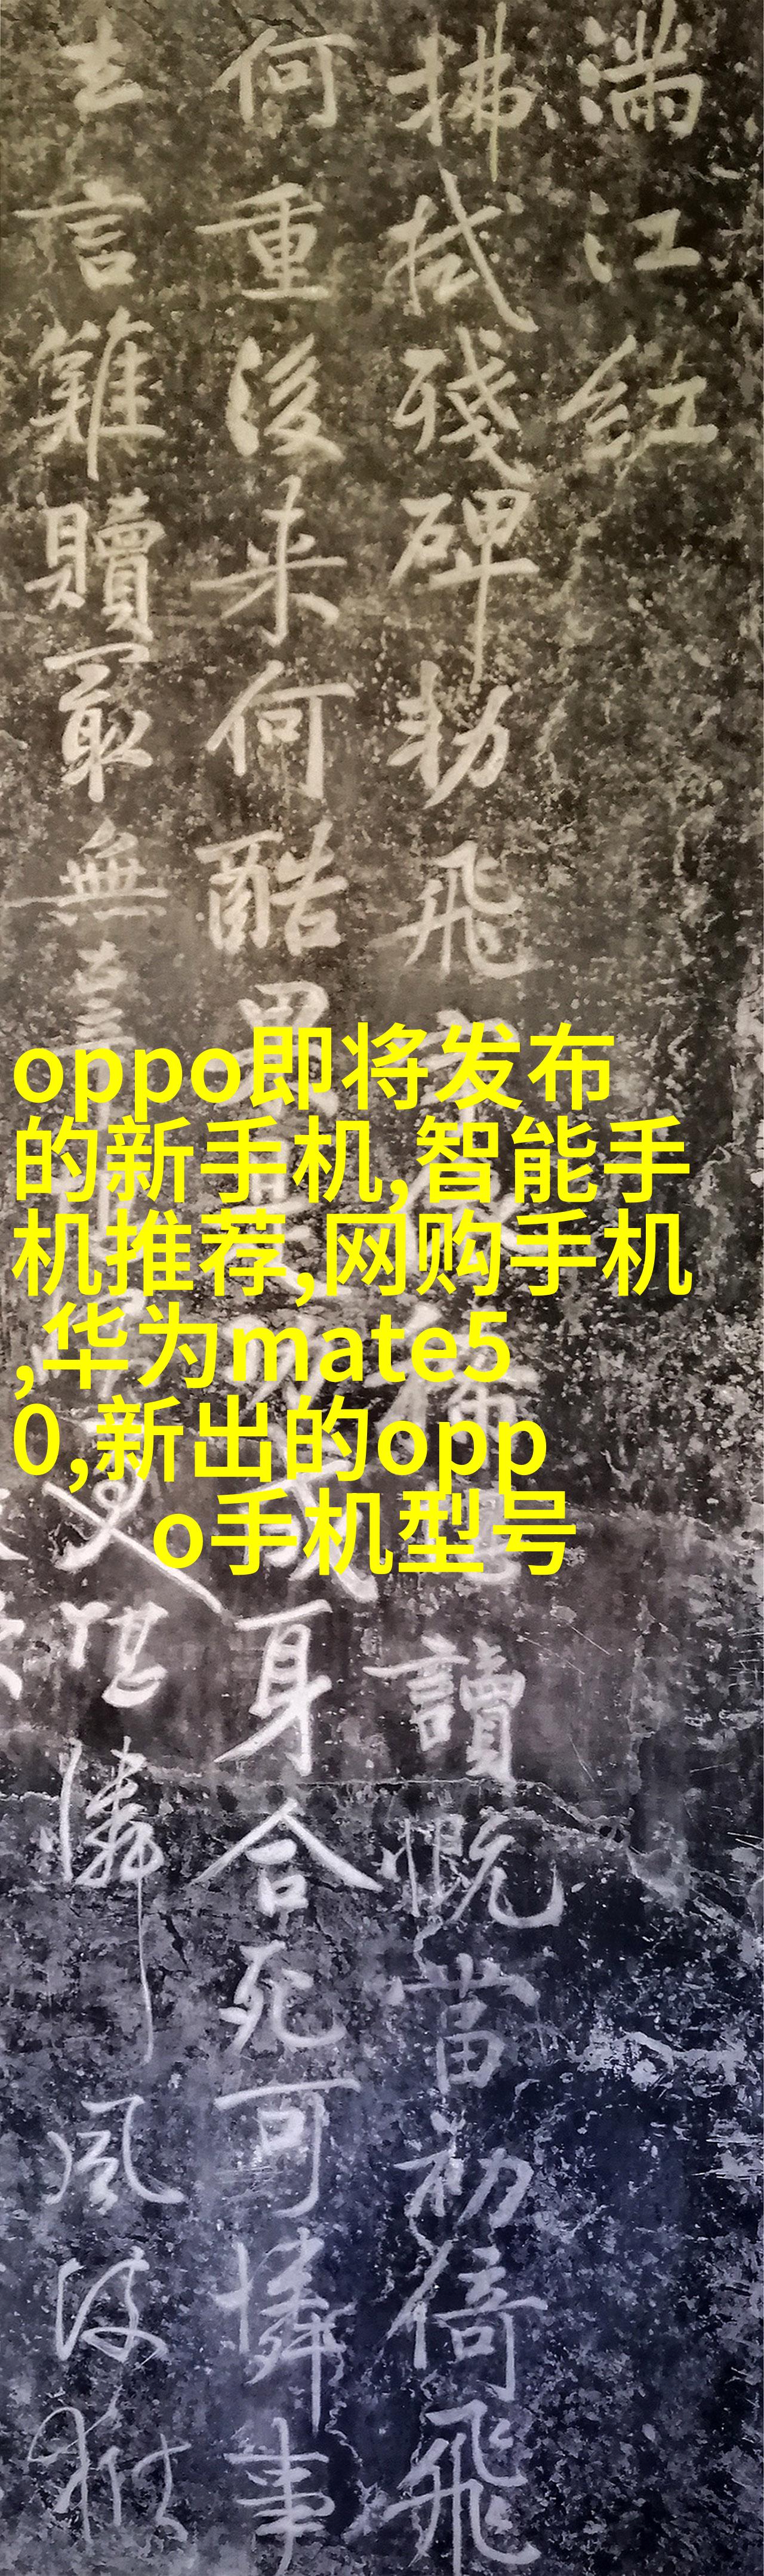 滿江紅
拂拭殘碑勅飛讀慨當初倚飛
何重後来何酷身合死可憐事
去言難贖最無辜又堪憐風波獄
oppo即将发布
的新手机,智能手
机推荐,网购手机
,华为mate5
0,新出的opp
o手机型号